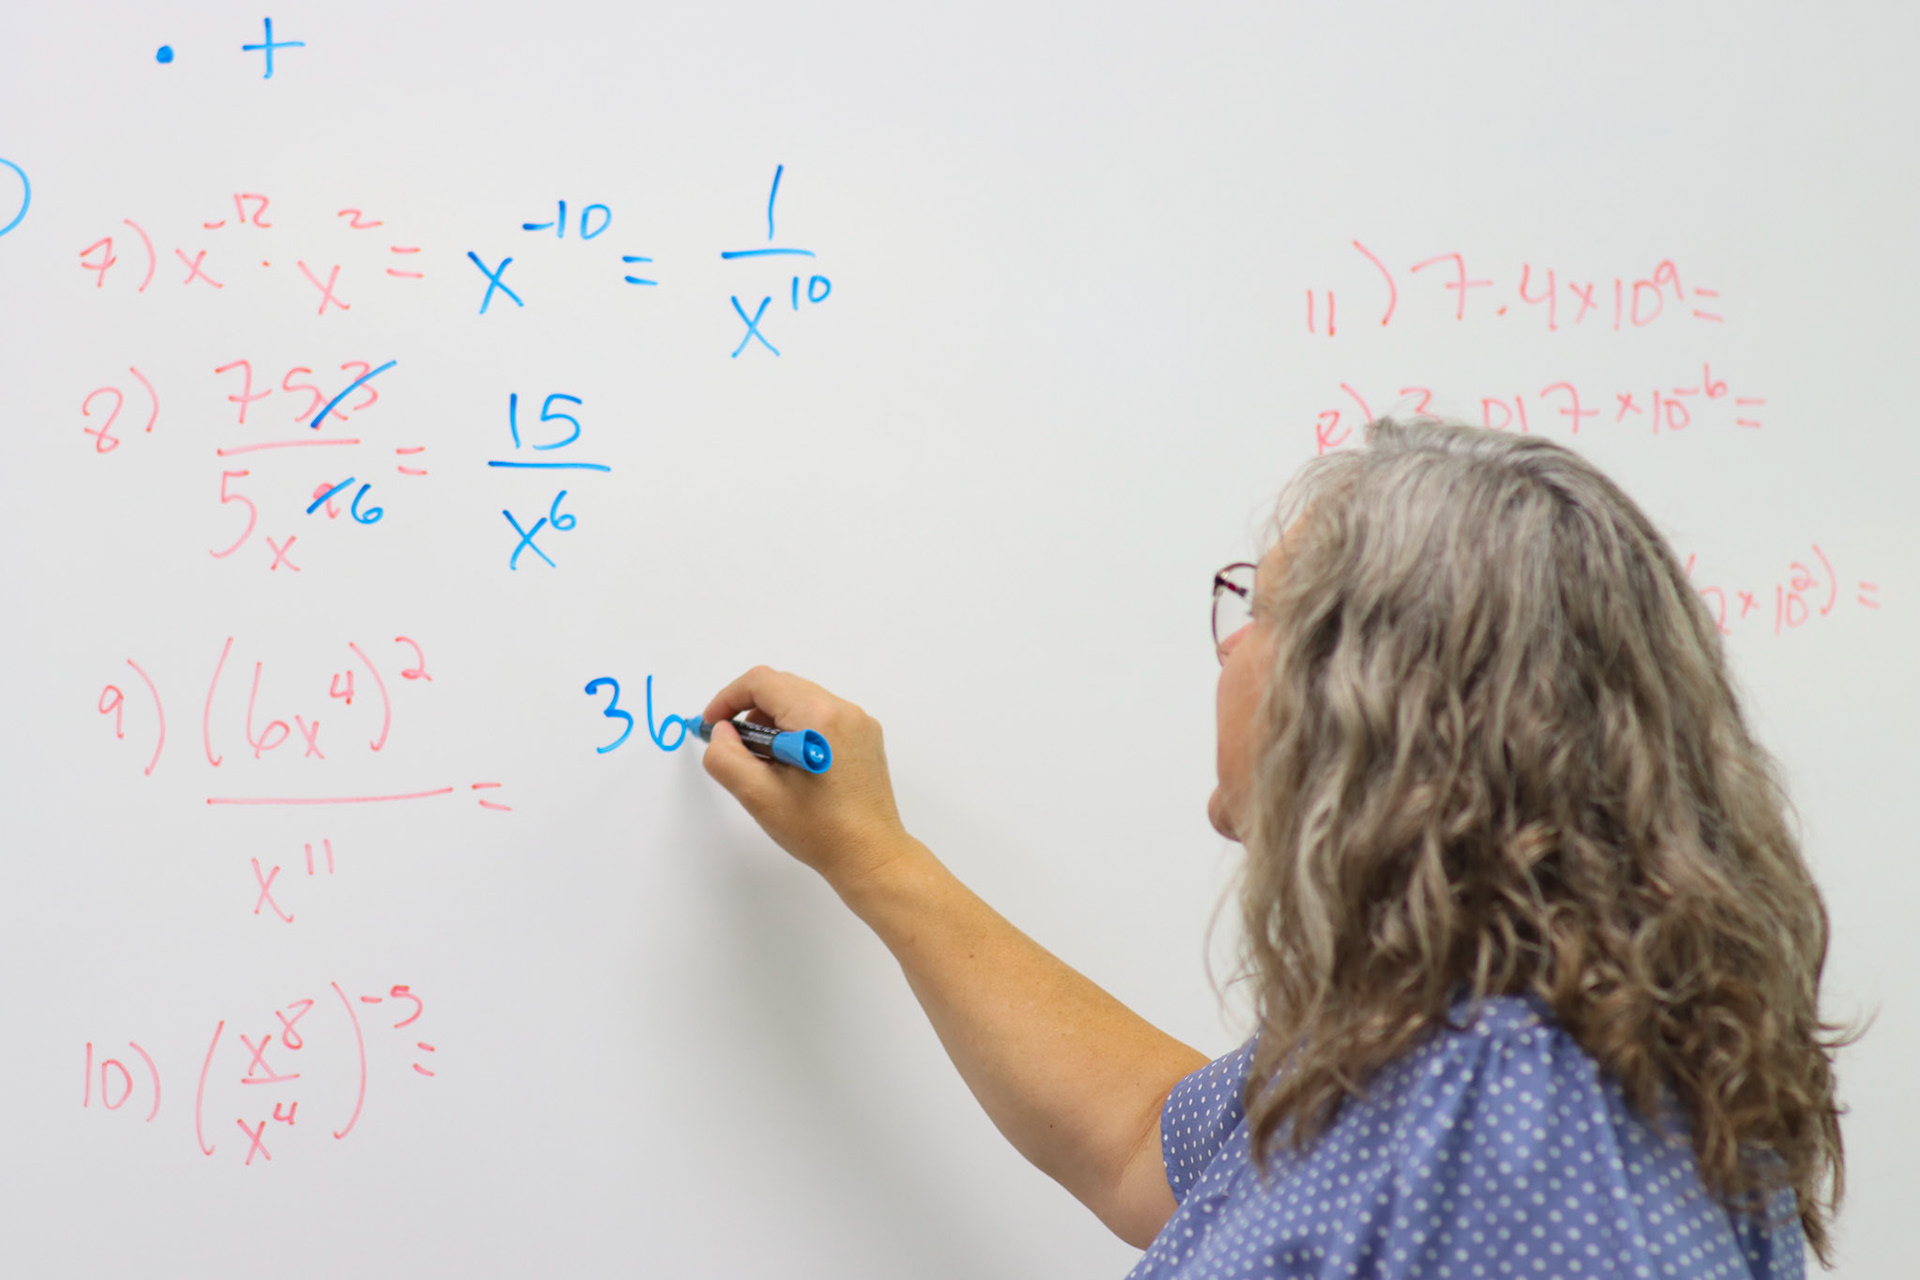 • +
7) x⁻¹² · x² = x⁻¹⁰ = 1/x¹⁰
8) 75x3/5x 6 = 15/x⁶
9) (6x⁴)²/x¹¹ = 36
10) (x⁸/x⁴)⁻⁵ =
11) 7.4×10⁹ =
12) 3.017×10⁻⁶ =
2×10²) =